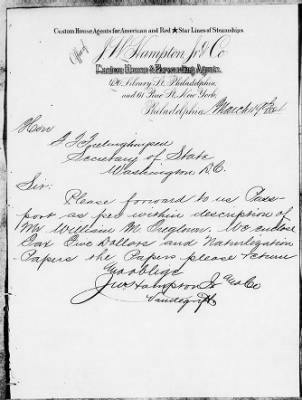 Custom House Agents for American and Red ★ Star Lines of Steamships.
Office of
J. W. Hampton Jr. & Co.
Custom House & Forwarding Agents.
420 Library St. Philadelphia,
and 61 Pine St. New York.
Philadelphia, March 19th
Hon
F. T. Frelinghuysen
Secretary of State
Washington D.C.
Sir:
Please forward to us Pass-
port as per within description of
Mr William M. We enclose
Five Dollars and Naturalization
Papers the Papers please return
and oblige
J W Hampton Jr and Co
Vandegrift